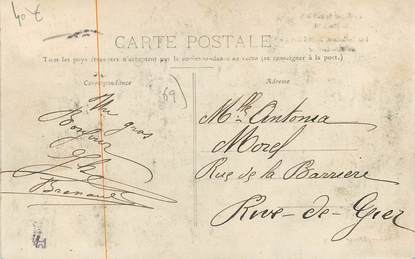 40 €
CARTE POSTALE
Tous les pays étrangers n'acceptent pas la correspondance au recto (se renseigner à la poste).
Correspondance
Adresse
69
Un gros
Bonjour
Mlle Antonia
Morel
Rue de la Barrière
Rive-de-Gier